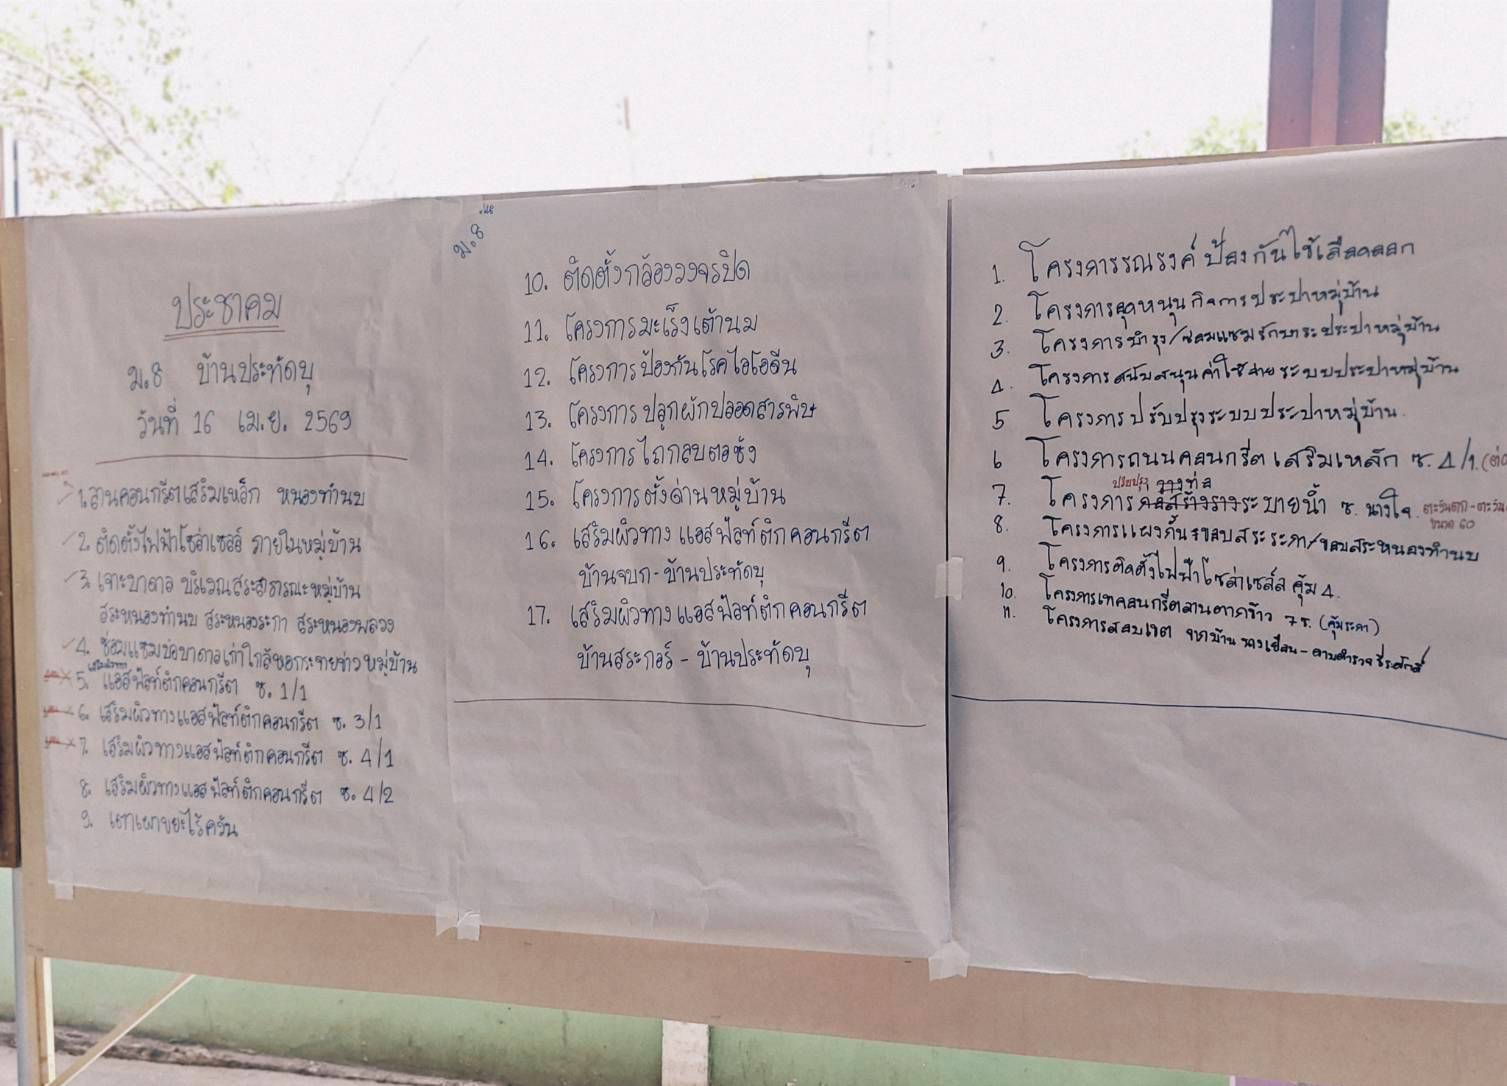 ประชาคม
ม.8 บ้านประทัดบุ
วันที่ 16 เม.ย. 2569
1. ลานคอนกรีตเสริมเหล็ก หนองทำนบ
2. ติดตั้งไฟฟ้าโซล่าเซลล์ ภายในหมู่บ้าน
3. เจาะบาดาล บริเวณสระสาธารณะหมู่บ้าน
สระหนองทำนบ สระหนองระกา สระหนองพลวง
4. ซ่อมแซมบ่อบาดาลเก่าใกล้หอกระจายข่าวหมู่บ้าน
เสริมผิวทาง
5. แอสฟัลท์ติกคอนกรีต ซ. 1/1
6. เสริมผิวทางแอสฟัลท์ติกคอนกรีต ซ. 3/1
7. เสริมผิวทางแอสฟัลท์ติกคอนกรีต ซ. 4/1
8. เสริมผิวทางแอสฟัลท์ติกคอนกรีต ซ. 4/2
9. เตาเผาขยะไร้ควัน
ม.8
10. ติดตั้งกล้องวงจรปิด
11. โครงการมะเร็งเต้านม
12. โครงการป้องกันโรคไอโอดีน
13. โครงการปลูกผักปลอดสารพิษ
14. โครงการไถกลบตอซัง
15. โครงการตั้งด่านหมู่บ้าน
16. เสริมผิวทางแอสฟัลท์ติกคอนกรีต
บ้านจบก - บ้านประทัดบุ
17. เสริมผิวทางแอสฟัลท์ติกคอนกรีต
บ้านสระกอร์ - บ้านประทัดบุ
1. โครงการรณรงค์ป้องกันไข้เลือดออก
2. โครงการอุดหนุนกิจการประปาหมู่บ้าน
3. โครงการบำรุง/ซ่อมแซมรักษาระประปาหมู่บ้าน
4. โครงการสนับสนุนค่าใช้จ่ายระบบประปาหมู่บ้าน
5 โครงการปรับปรุงระบบประปาหมู่บ้าน
6 โครงการถนนคอนกรีตเสริมเหล็ก ซ. 4/1
ปรับปรุง วางท่อ
7. โครงการก่อสร้างรางระบายน้ำ ซ. นางใจ ตะวันตก - ตะวัน
ขนาด 60
8. โครงการแผงกั้นขอบสระระกา/ขอบสระหนองทำนบ
9. โครงการติดตั้งไฟฟ้าโซล่าเซลล์ คุ้ม 4
10. โครงการเทคอนกรีตลานตากข้าว 7 ซ. (คุ้มระกา)
11. โครงการสอบเขต จากบ้าน